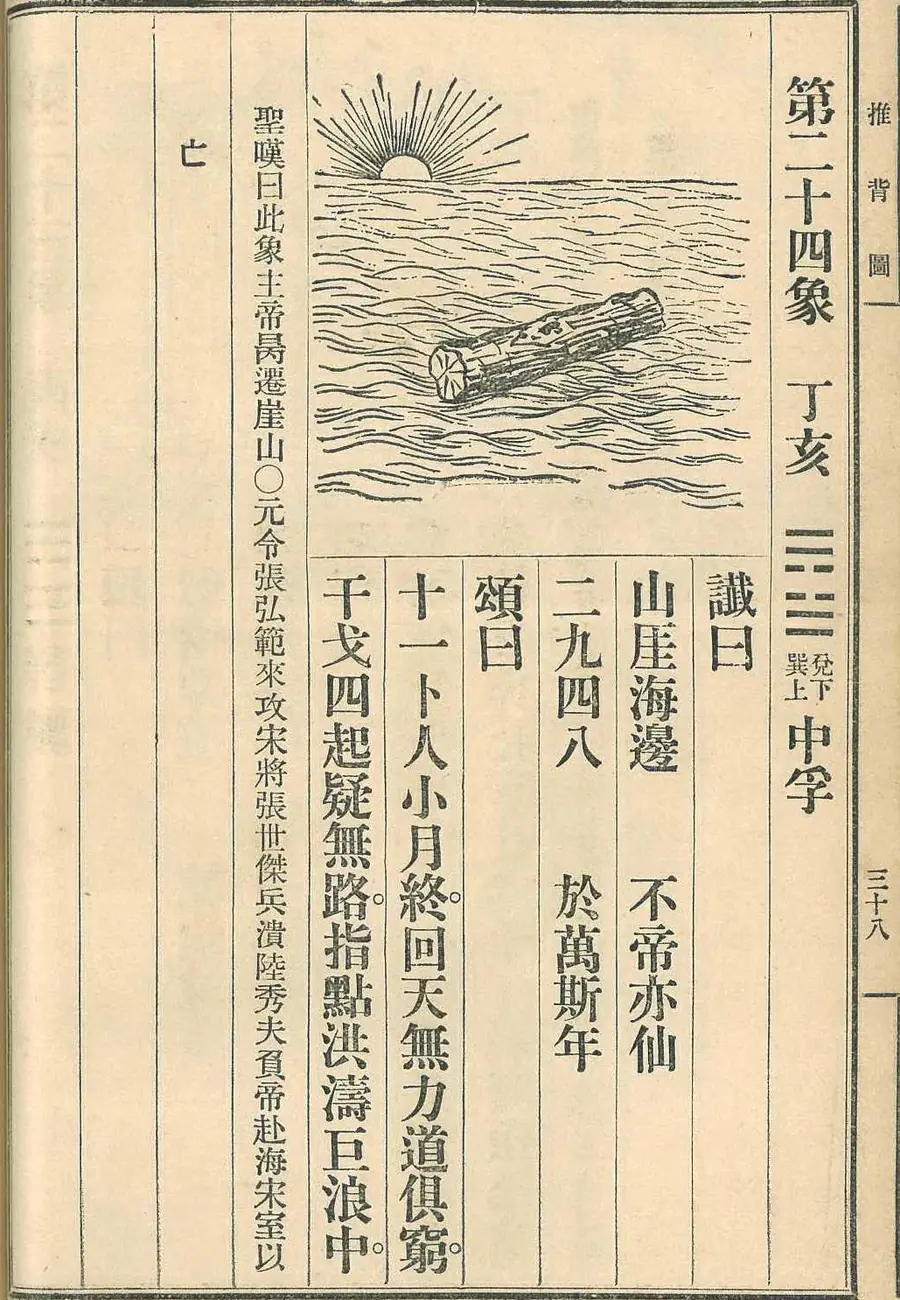 推背圖
三十八
第二十四象 丁亥 ䷼ 兌下巽上 中孚
讖曰
山厓海邊 不帝亦仙
二九四八 於萬斯年
頌曰
十一卜人小月終。回天無力道俱窮。
干戈四起疑無路。指點洪濤巨浪中。
聖嘆曰此象主帝昺遷崖山〇元令張弘範來攻宋將張世傑兵潰陸秀夫負帝赴海宋室以
亡